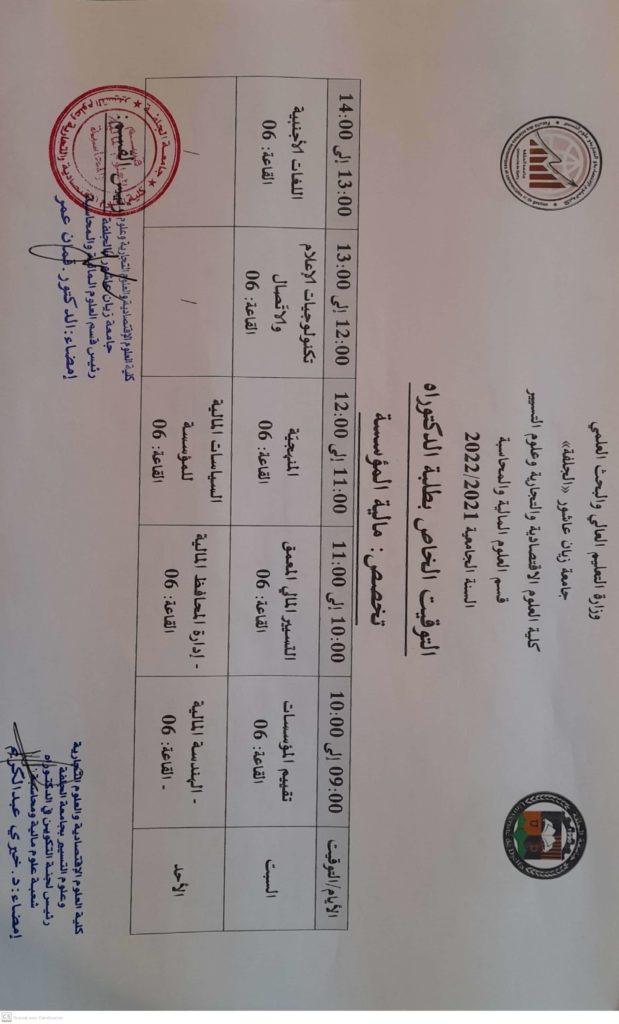 وزارة التعليم العالي والبحث العلمي
جامعة زيان عاشور «الجلفة»
كلية العلوم الاقتصادية والتجارية وعلوم التسيير
قسم العلوم المالية والمحاسبة
السنة الجامعية 2022/2021
التوقيت الخاص بطلبة الدكتوراه
تخصص: مالية المؤسسة
الأيام/التوقيت 09:00 إلى 10:00 10:00 إلى 11:00 11:00 إلى 12:00 12:00 إلى 13:00 13:00 إلى 14:00
السبت
تقييم المؤسسات
القاعة: 06
التسيير المالي المعمق
القاعة: 06
المنهجيّة
القاعة: 06
تكنولوجيات الإعلام
والاتصال
القاعة: 06
اللغات الأجنبية
القاعة: 06
الأحد
- الهندسة المالية
- القاعة: 06
- إدارة المحافظ المالية
القاعة: 06
السياسات المالية
للمؤسسة
القاعة: 06
/
/
كلية العلوم الإقتصادية والعلوم التجارية
وعلوم التسيير بجامعة الجلفة
رئيس لجنة التكوين في الدكتوراه
شعبة علوم مالية ومحاسبة
إمضاء: د. خيري عبدالكريم
رئيس القسم:
كلية العلوم الإقتصادية والعلوم التجارية وعلوم
جامعة زيان عاشور بالجلفة
رئيس قسم العلوم المالية والمحاسبة
إمضاء: الدكتور. قمان عمر
جامعة الجلفة
CS